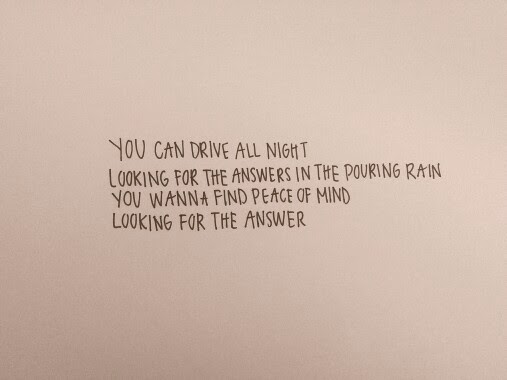 YOU CAN DRIVE ALL NIGHT
LOOKING FOR THE ANSWERS IN THE POURING RAIN
YOU WANNA FIND PEACE OF MIND
LOOKING FOR THE ANSWER